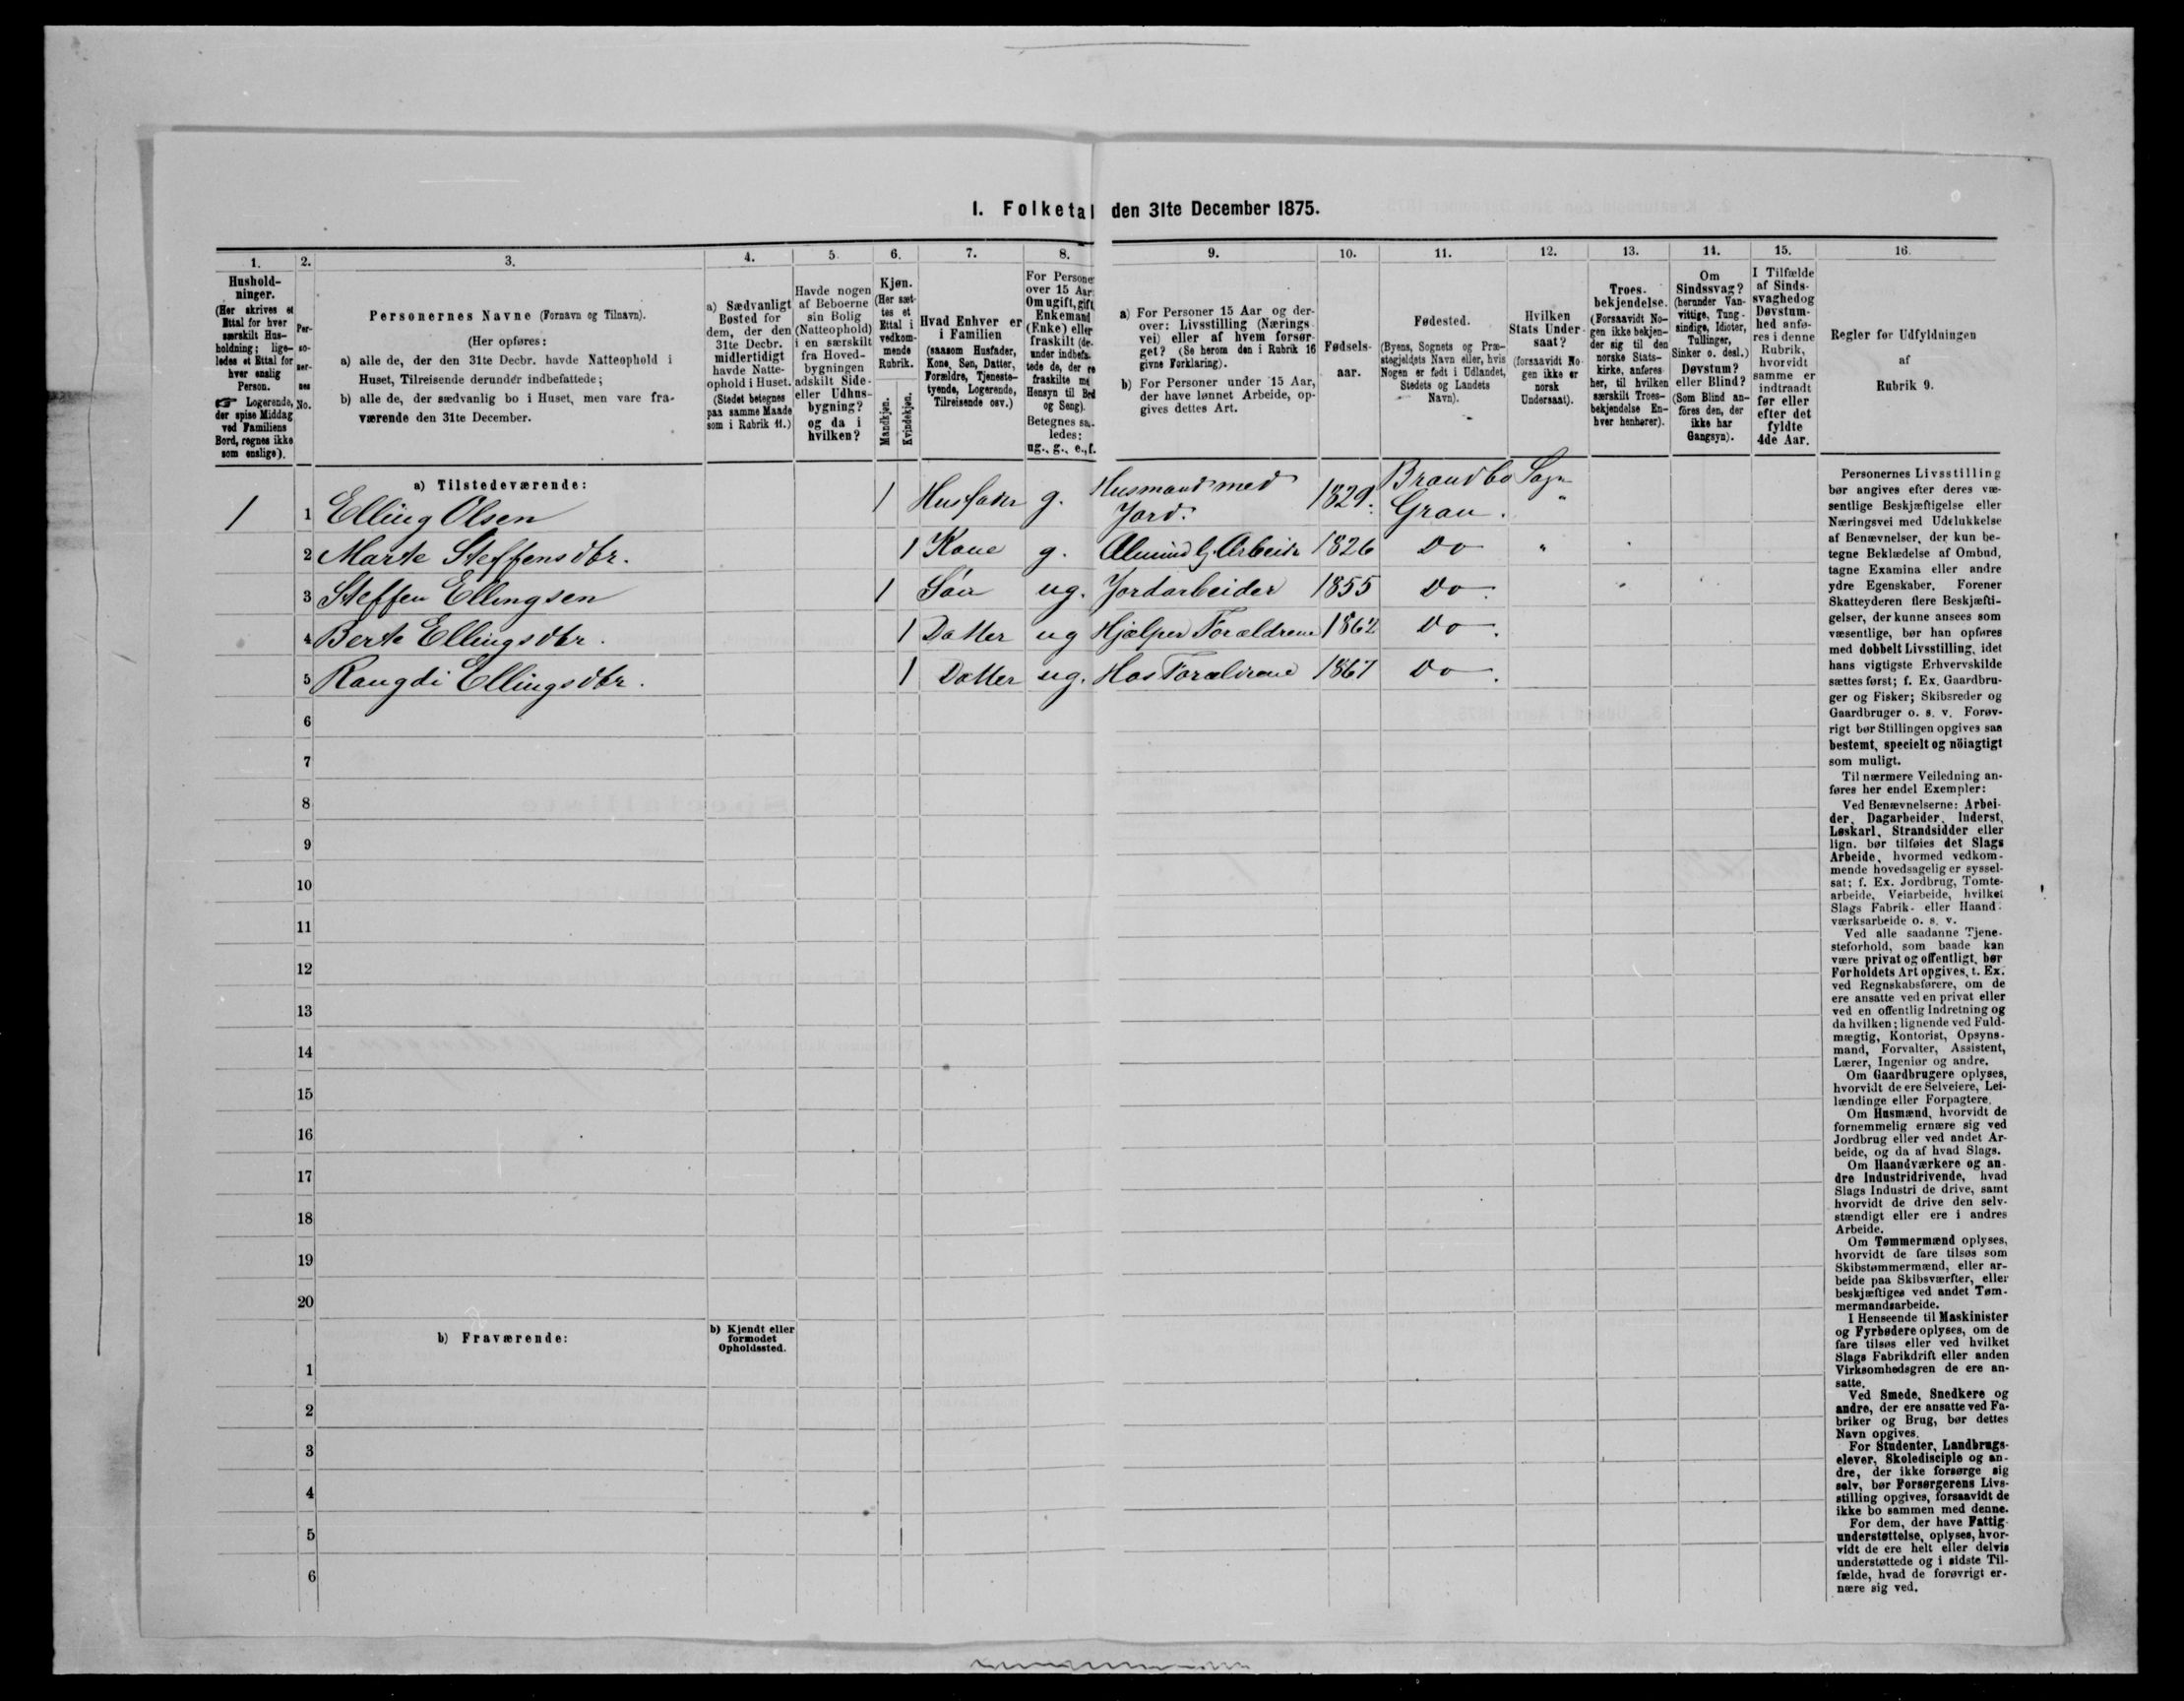 I. Folketal den 31te December 1875.
1. 2. 3. 4. 5. 6. 7. 8. 9. 10. 11. 12. 13. 14. 15. 16.
Hushold-
ninger.
(Her skrives et
Ettal for hver
særskilt Hus-
holdning; lige-
ledes et Ettal for
hver enslig
Person.
☞ Logerende,
der spise Middag
ved Familiens
Bord, regnes ikke
som enslige).
Per-
so-
ner-
nes
No.
Personernes Navne (Fornavn og Tilnavn).
(Her opføres:
a) alle de, der den 31te Decbr. havde Natteophold i
Huset, Tilreisende derunder indbefattede;
b) alle de, der sædvanlig bo i Huset, men vare fra-
værende den 31te December.
a) Sædvanligt
Bosted for
dem, der den
31te Decbr.
midlertidigt
havde Natte-
ophold i Huset.
(Stedet betegnes
paa samme Maade
som i Rubrik 11.)
Havde nogen
af Beboerne
sin Bolig
(Natteophold)
i en særskilt
fra Hoved-
bygningen
adskilt Side-
eller Udhus-
bygning?
og da i
hvilken?
Kjøn.
(Her sæt-
tes et
Ettal i
vedkom-
mende
Rubrik.
Mandkjøn.
Kvindekjøn.
Hvad Enhver er
i Familien
(saasom Husfader,
Kone, Søn, Datter,
Forældre, Tjeneste-
tyende, Logerende,
Tilreisende osv.)
For Persone
over 15 Aar:
Om ugift, gift,
Enkemand
(Enke) eller
fraskilt (der-
under indbefa-
tede de, der re
fraskilte me
Hensyn til Bord
og Seng).
Betegnes saa-
ledes:
ug., g., e., f.
a) For Personer 15 Aar og der-
over: Livsstilling (Nærings-
vei) eller af hvem forsør-
get? (Se herom den i Rubrik 16
givne Forklaring).
b) For Personer under 15 Aar,
der have lønnet Arbeide, op-
gives dettes Art.
Fødsels-
aar.
Fødested.
(Byens, Sognets og Præ-
stegjeldets Navn eller, hvis
Nogen er født i Udlandet,
Stedets og Landets
Navn).
Hvilken
Stats Under-
saat?
(forsaavidt No-
gen ikke er
norsk
Undersaat).
Troes-
bekjendelse.
(Forsaavidt No-
gen ikke bekjen-
der sig til den
norske Stats-
kirke, anføres
her, til hvilken
særskilt Troes-
bekjendelse En-
hver henhører).
Om
Sindssvag?
(herunder Van-
vittige, Tung-
sindige, Idioter,
Tullinger,
Sinker o. desl.)
Døvstum?
eller Blind?
(Som Blind an-
föres den, der
ikke har
Gangsyn).
I Tilfælde
af Sinds-
svaghed og
Døvstum-
hed anfø-
res i denne
Rubrik,
hvorvidt
samme er
indtraadt
før eller
efter det
fyldte
4de Aar.
Regler for Udfyldningen
af
Rubrik 9.
a) Tilstedeværende:
1 1 Elling Olsen 1 Husfader g. Husmand med Jord. 1829. Brandbo Sogn Gran. "
2 Marte Steffensdtr. 1 Kone g. Almindlg. Arbeide 1826 Do "
3 Steffen Ellingsen 1 Søn ug. Jordarbeider 1855 Do.
4 Berte Ellingsdtr. 1 Datter ug Hjælper Forældrene 1862 Do.
5 Rangdi Ellingsdtr. 1 Datter ug. Hos Forældrene 1867 Do.
6
7
8
9
10
11
12
13
14
15
16
17
18
19
20
b) Fraværende:
b) Kjendt eller
formodet
Opholdssted.
1
2
3
4
5
6
Personernes Livsstilling
bør angives efter deres væ-
sentlige Beskjæftigelse eller
Næringsvei med Udelukkelse
af Benævnelser, der kun be-
tegne Beklædelse af Ombud,
tagne Examina eller andre
ydre Egenskaber. Forener
Skatteyderen flere Beskjæfti-
gelser, der kunne ansees som
væsentlige, bør han opføres
med dobbelt Livsstilling, idet
hans vigtigste Erhvervskilde
sættes først; f. Ex. Gaardbru-
ger og Fisker; Skibsreder og
Gaardbruger o. s. v. Forøv-
rigt bør Stillingen opgives saa
bestemt, specielt og nöiagtigt
som muligt.
Til nærmere Veiledning an-
føres her endel Exempler:
Ved Benævnelserne: Arbei-
der, Dagarbeider, Inderst,
Løskarl, Strandsidder eller
lign. bør tilføies det Slags
Arbeide, hvormed vedkom-
mende hovedsagelig er syssel-
sat; f. Ex. Jordbrug, Tomte-
arbeide, Veiarbeide, hvilket
Slags Fabrik- eller Haand-
værksarbeide o. s. v.
Ved alle saadanne Tjene-
steforhold, som baade kan
være privat og offentligt, bør
Forholdets Art opgives, t. Ex.
ved Regnskabsførere, om de
ere ansatte ved en privat eller
ved en offentlig Indretning og
da hvilken; lignende ved Fuld-
mægtig, Kontorist, Opsyns-
mand, Forvalter, Assistent,
Lærer, Ingeniør og andre.
Om Gaardbrugere oplyses,
hvorvidt de ere Selveiere, Lei-
lændinge eller Forpagtere.
Om Husmænd, hvorvidt de
fornemmelig ernære sig ved
Jordbrug eller ved andet Ar-
beide, og da af hvad Slags.
Om Haandværkere og an-
dre Industridrivende, hvad
Slags Industri de drive, samt
hvorvidt de drive den selv-
stændigt eller ere i andres
Arbeide.
Om Tømmermænd oplyses,
hvorvidt de fare tilsøs som
Skibstømmermænd, eller ar-
beide paa Skibsværfter, eller
beskjæftiges ved andet Tøm-
mermandsarbeide.
I Henseende til Maskinister
og Fyrbødere oplyses, om de
fare tilsøs eller ved hvilket
Slags Fabrikdrift eller anden
Virksomhedsgren de ere an-
satte.
Ved Smede, Snedkere og
andre, der ere ansatte ved Fa-
briker og Brug, bør dettes
Navn opgives.
For Studenter, Landbrugs-
elever, Skoledisciple og an-
dre, der ikke forsørge sig
selv, bør Forsørgerens Livs-
stilling opgives, forsaavidt de
ikke bo sammen med denne.
For dem, der have Fattig-
understøttelse, oplyses, hvor-
vidt de ere helt eller delvis
understøttede og i sidste Til-
fælde, hvad de forøvrigt er-
nære sig ved.